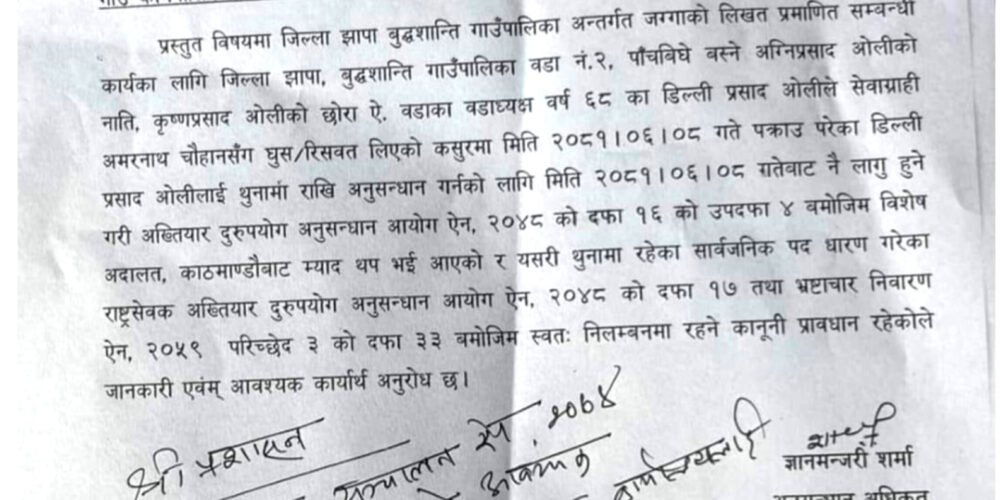 प्रस्तुत विषयमा जिल्ला झापा बुद्धशान्ति गाउँपालिका अन्तर्गत जग्गाको लिखत प्रमाणित सम्बन्धी
कार्यका लागि जिल्ला झापा, बुद्धशान्ति गाउँपालिका वडा नं.२, पाँचबिघे बस्ने अग्निप्रसाद ओलीको
नाति, कृष्णप्रसाद ओलीको छोरा ऐ. वडाका वडाध्यक्ष वर्ष ६८ का डिल्ली प्रसाद ओलीले सेवाग्राही
अमरनाथ चौहानसँग घुस/रिसवत लिएको कसुरमा मिति २०८१।०६।०८ गते पक्राउ परेका डिल्ली
प्रसाद ओलीलाई थुनामा राखि अनुसन्धान गर्नको लागि मिति २०८१।०६।०८ गतेबाट नै लागु हुने
गरी अख्तियार दुरुपयोग अनुसन्धान आयोग ऐन, २०४८ को दफा १६ को उपदफा ४ बमोजिम विशेष
अदालत, काठमाण्डौबाट म्याद थप भई आएको र यसरी थुनामा रहेका सार्वजनिक पद धारण गरेका
राष्ट्रसेवक अख्तियार दुरुपयोग अनुसन्धान आयोग ऐन, २०४८ को दफा १७ तथा भ्रष्टाचार निवारण
ऐन, २०५९ परिच्छेद ३ को दफा ३३ बमोजिम स्वतः निलम्बनमा रहने कानूनी प्रावधान रहेकोले
जानकारी एवंम् आवश्यक कार्यार्थ अनुरोध छ।
श्री प्रशासन
ज्ञानमन्जरी शर्मा
अनुसन्धान अधिकृत